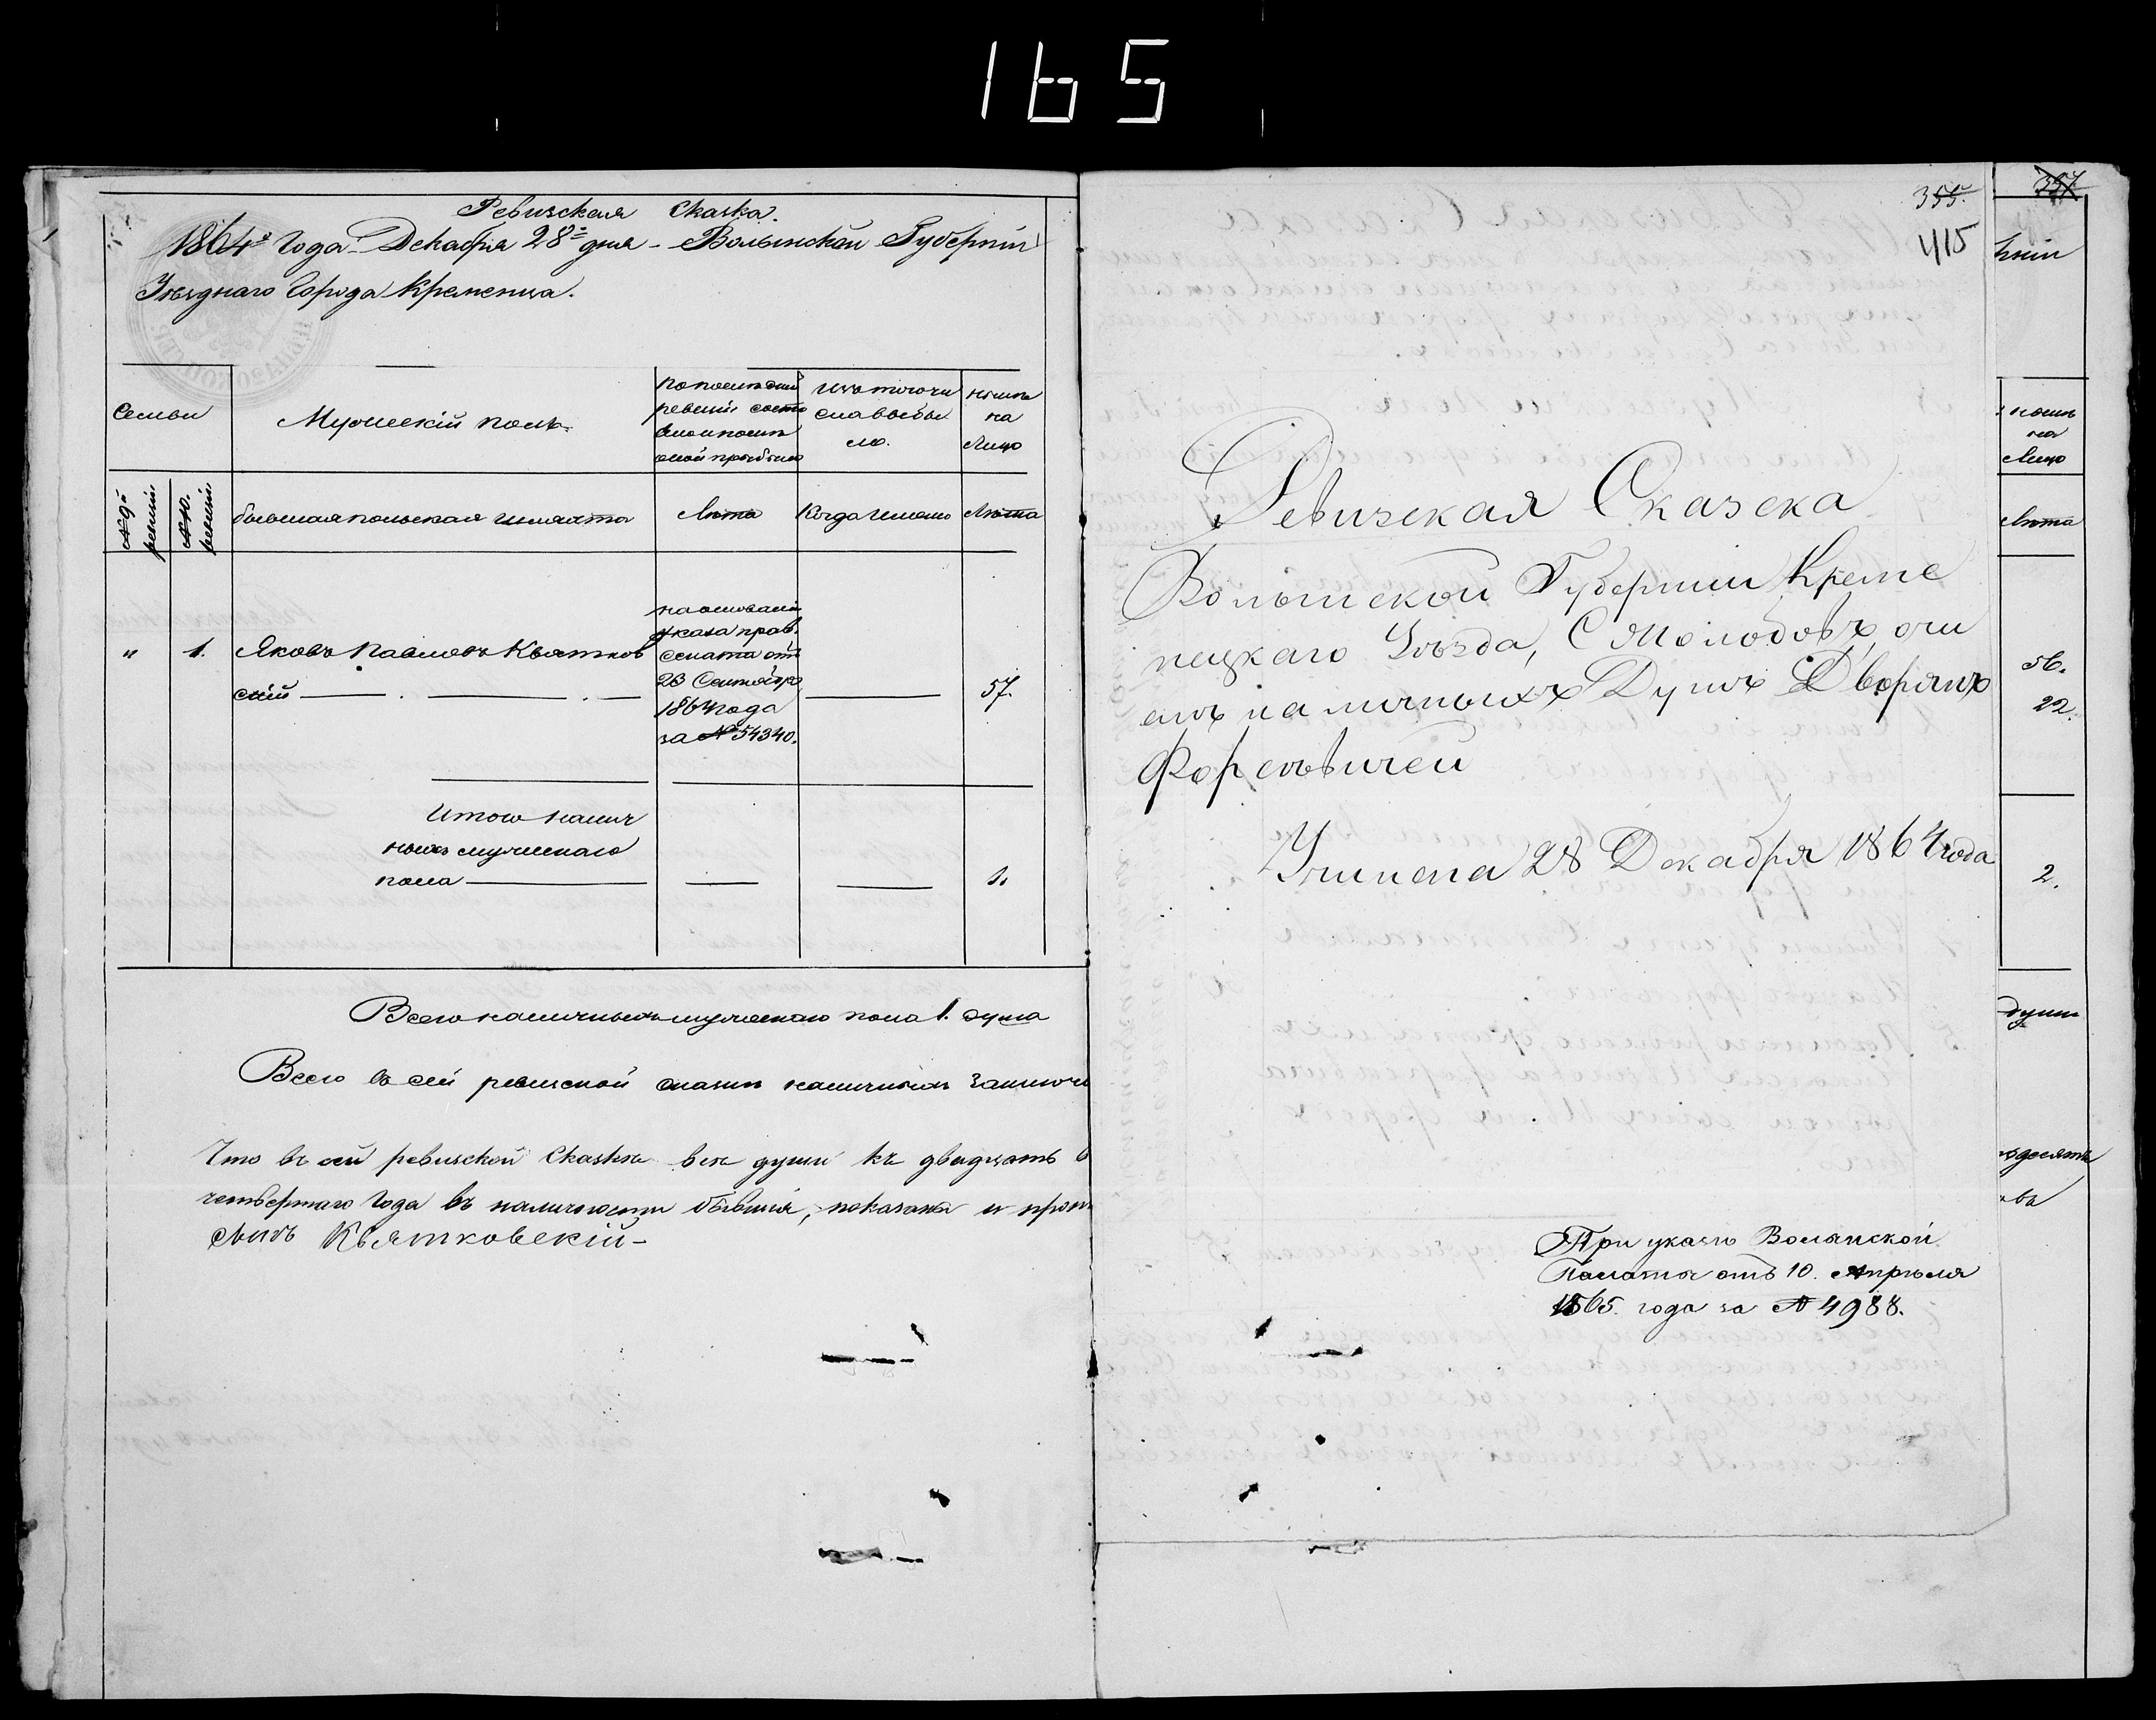 165
Ревизская Сказка.
1864го Года Декабря 28го дня – Волынской Губерніи
Уѣзднаго Города Кременца.
Семьи
Мужескій полъ.
по последней
ревизіи состо
яло и после
оной прибыло
изъ того чи
сла выбы
ло.
нынѣ
на
Лицо
№ 9й ревизіи
№ 10. ревизіи
бывшая польская шляхта
Лѣта
Когда именно
Лѣта
"
1.
Яковъ Павловъ Квятков
скій
на основаніи
указа прав.
Сената отъ
23 Сентября
1864 года
за № 54340.
57.
Итого налич
ныхъ мужескаго
пола
1.
Всего наличныхъ мужескаго пола 1. душа
Всего въ сей ревизской сказкѣ наличныхъ заключ
Что въ сей ревизской Сказкѣ всѣ души къ двадцать
четвертаго Года въ наличности бывшія, показаны и
сынъ Квятковскій –
355.
415
Ревизская Сказска
Волынской Губерніи Креме
нецкаго Уѣзда, С Молодовъ, о чи
слѣ наличныхъ Душъ Дворянъ
Форсевичей
Учинена 28 Декабря 1864 года
При указѣ Волынской
Палаты отъ 10. Апрѣля
1865. года за № 4988.
357
ніи
нынѣ
на
Лицо
Лѣта
56.
22.
2.
души
десять
въ